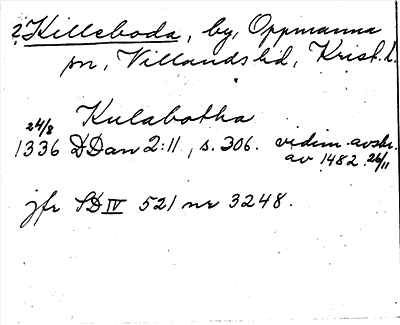 ?Killeboda, by, Oppmanna
sn, Villands hd, Krist. l.
Kulabotha
24/8
1336 DDan 2:11, s. 306. vidim. avskr.
av 1482 26/11
jfr SD IV 521 nr 3248.